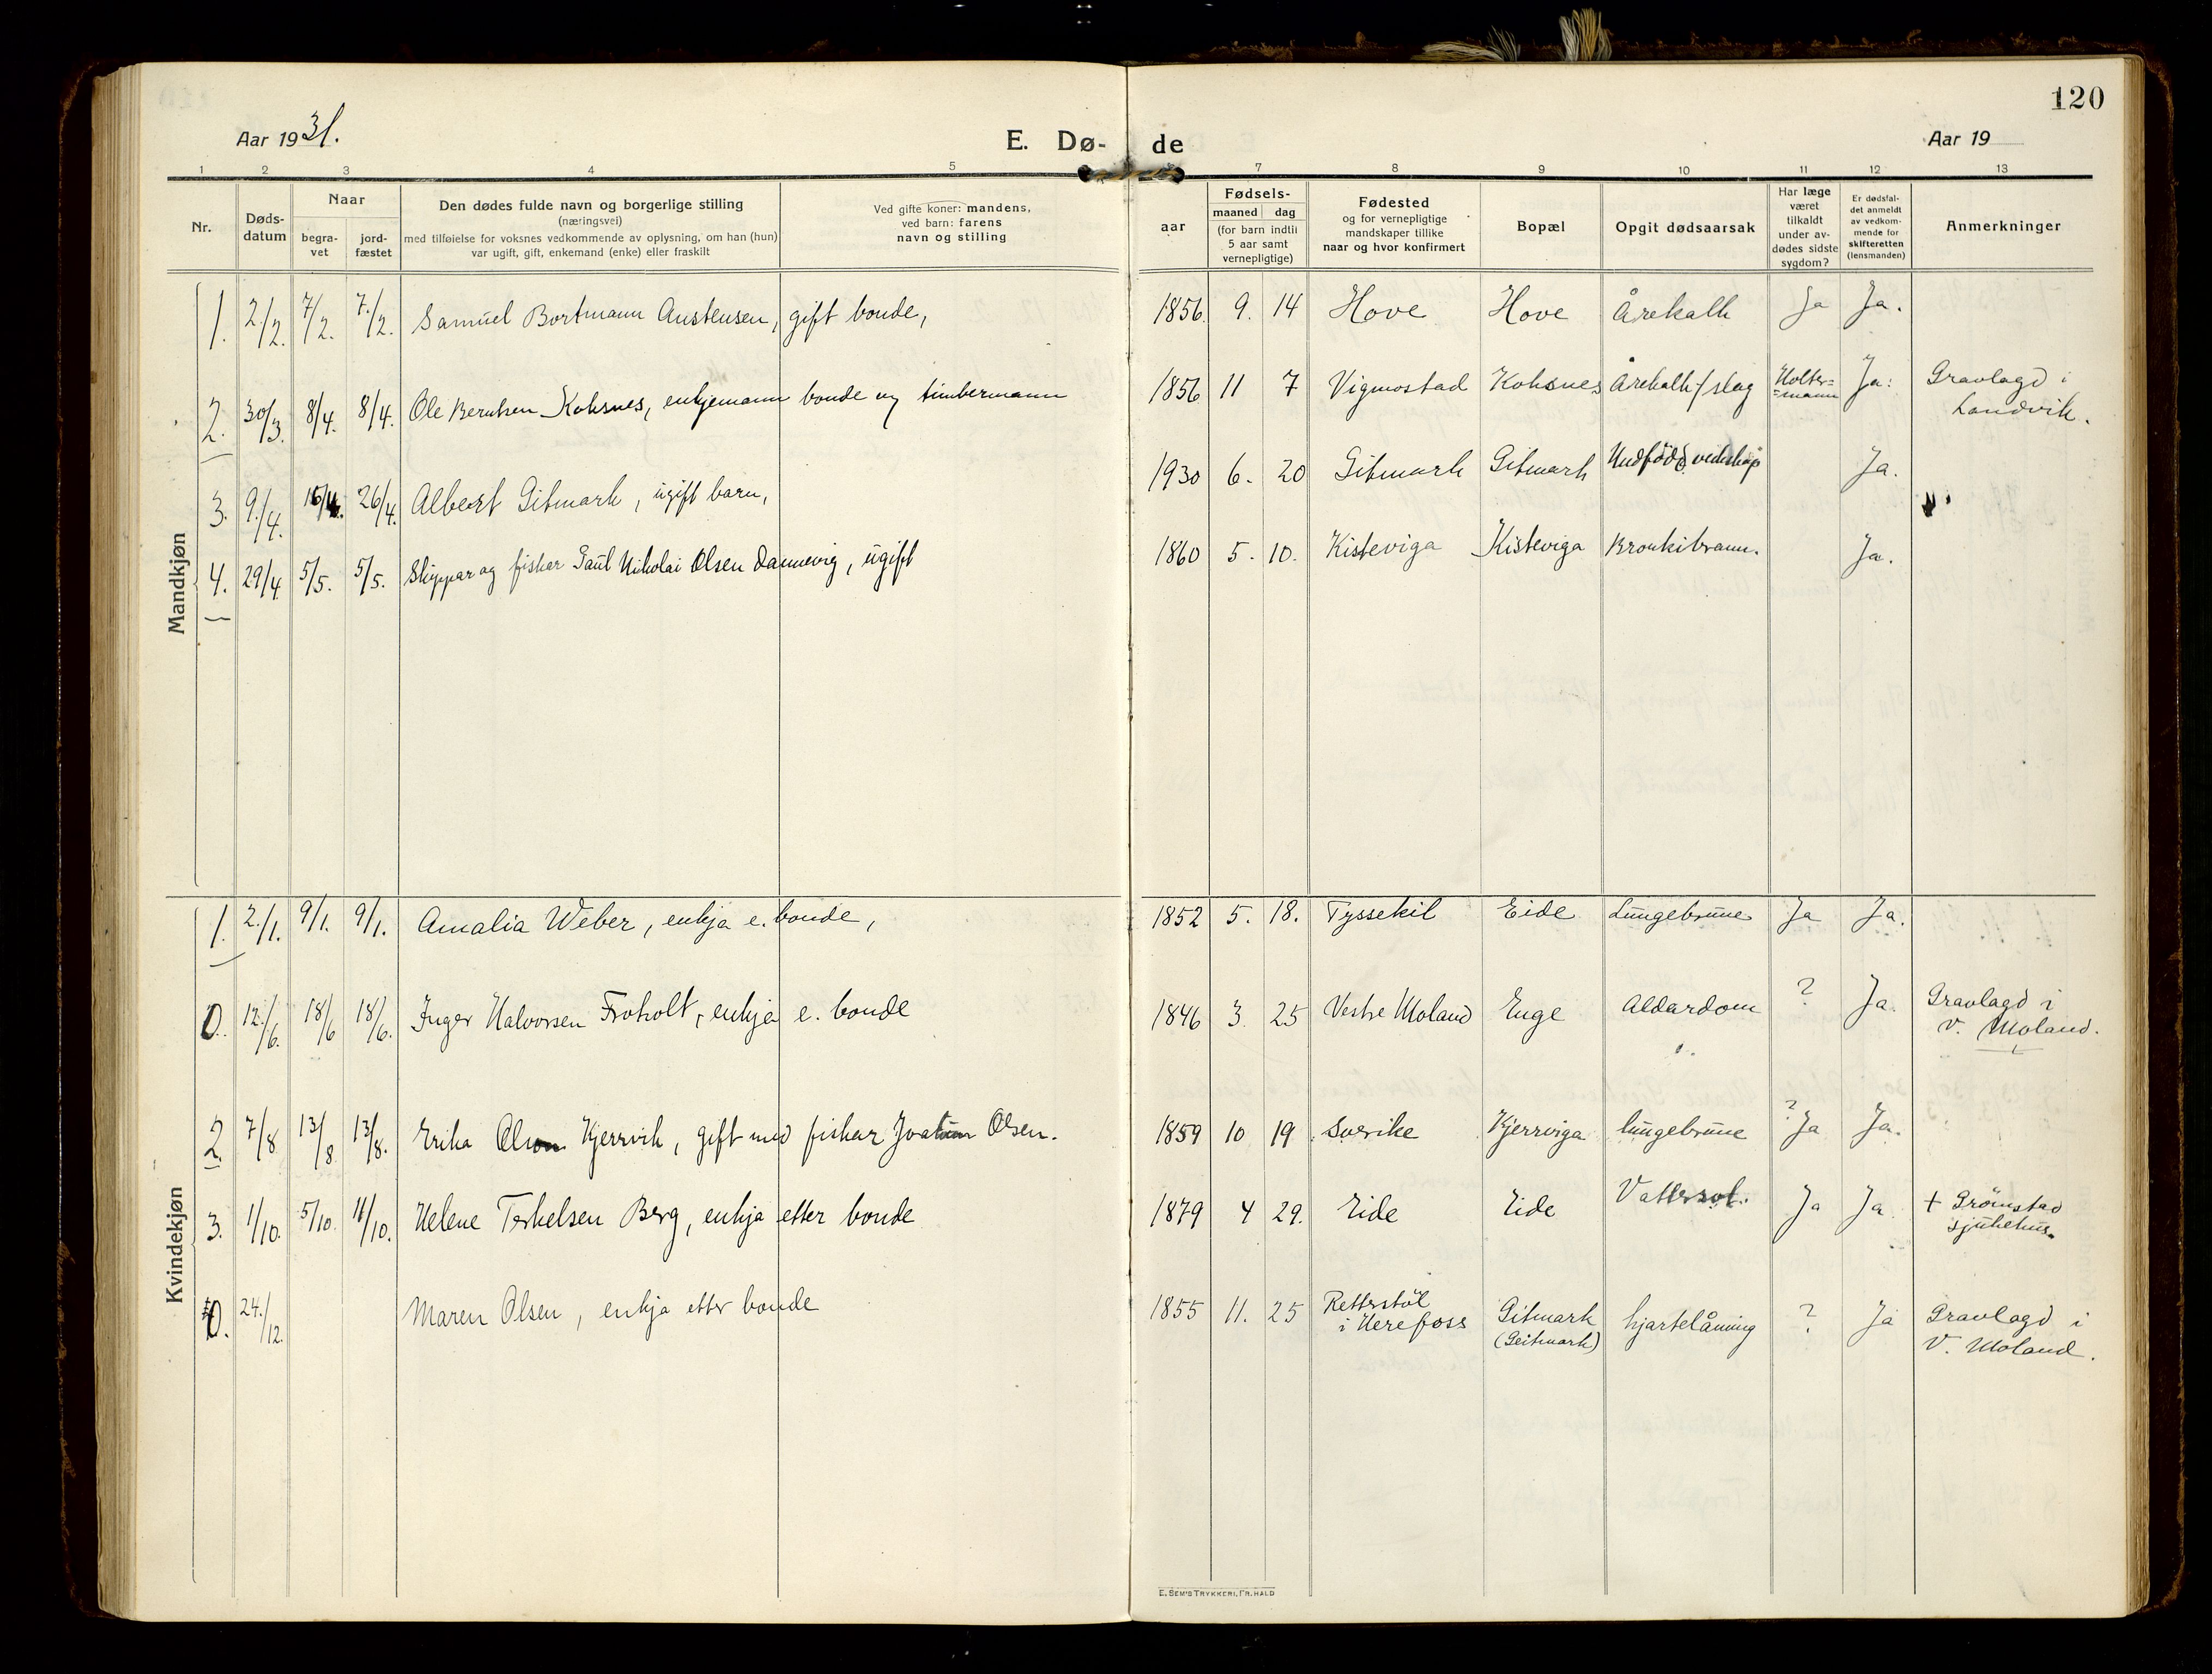 120
Aar 1931.
E. Dø-
de
Aar 19
1 2 3 4 5 7 8 9 10 11 12 13
Nr.
Døds-
datum
Naar
begra-
vet
jord-
fæstet
Den dødes fulde navn og borgerlige stilling
(næringsvei)
med tilføielse for voksnes vedkommende av oplysning, om han (hun)
var ugift, gift, enkemand (enke) eller fraskilt
Ved gifte koner: mandens,
ved barn: farens
navn og stilling
aar
Fødsels-
maaned dag
(for barn indtil
5 aar samt
vernepligtige)
Fødested
og for vernepligtige
mandskaper tillike
naar og hvor konfirmert
Bopæl
Opgit dødsaarsak
Har læge
været
tilkaldt
under av-
dødes sidste
sygdom?
Er dødsfal-
det anmeldt
av vedkom-
mende for
skifteretten
(lensmanden)
Anmerkninger
Mandkjøn
1. 2./2. 7/2. 7./2. Samuel Bortmann Austensen, gift bonde, 1856. 9. 14 Hove Hove Årekalk Ja Ja.
2. 30/3. 8/4. 8/4. Ole Berntsen Koksnes, enkjemann bonde og timbermann 1856 11 7 Vigmostad Koksnes Årekalk/slag Holter= Ja. Gravlagd i
=mann Landvik.
3. 9./4. 26/4. Albert Gitmark, ugift barn, 1930 6. 20 Gitmark Gitmark Undfødd veikskap Ja.
4. 29/4 5/5. 5/5. Skippar og fiskar Paul Nikolai Olsen Dannevig, ugift 1860 5. 10. Kisteviga Kisteviga Bronkibrann. Ja.
Kvindekjøn
1. 2./1. 9/1. 9/1. Amalia Weber, enkja e. bonde, 1852 5. 18. Tyssekil Eide Lungebrune Ja Ja.
0. 12./6. 18/6 18/6. Inger Halvorsen Froholt, enkja e. bonde 1846 3. 25 Vestre Moland Enge Aldardom ? Ja. Gravlagd i
V. Moland.
2. 7/8 13/8 13/8. Erika Olson Kjerrvik, gift med fiskar Joakim Olsen. 1859 10 19 Sverike Kjerrviga lungebrune ? Ja Ja.
3. 1/10. 5/10. 11/10. Helene Terkelsen Berg, enkja etter bonde 1879 4 29. Eide Eide Vattersot. Ja Ja. + Grömstad
sjukehus.
0. 24./12. Maren Olsen, enkja etter bonde 1855 11. 25 Retterstöl
i Herefoss Gitmark
(Geitmark) hjartelåming ? Ja Gravlagd i
V. Moland.
E. SEM'S TRYKKERI, FR. HALD